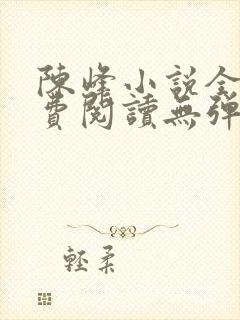 陳峰小說全
費閱讀無彈
輕柔